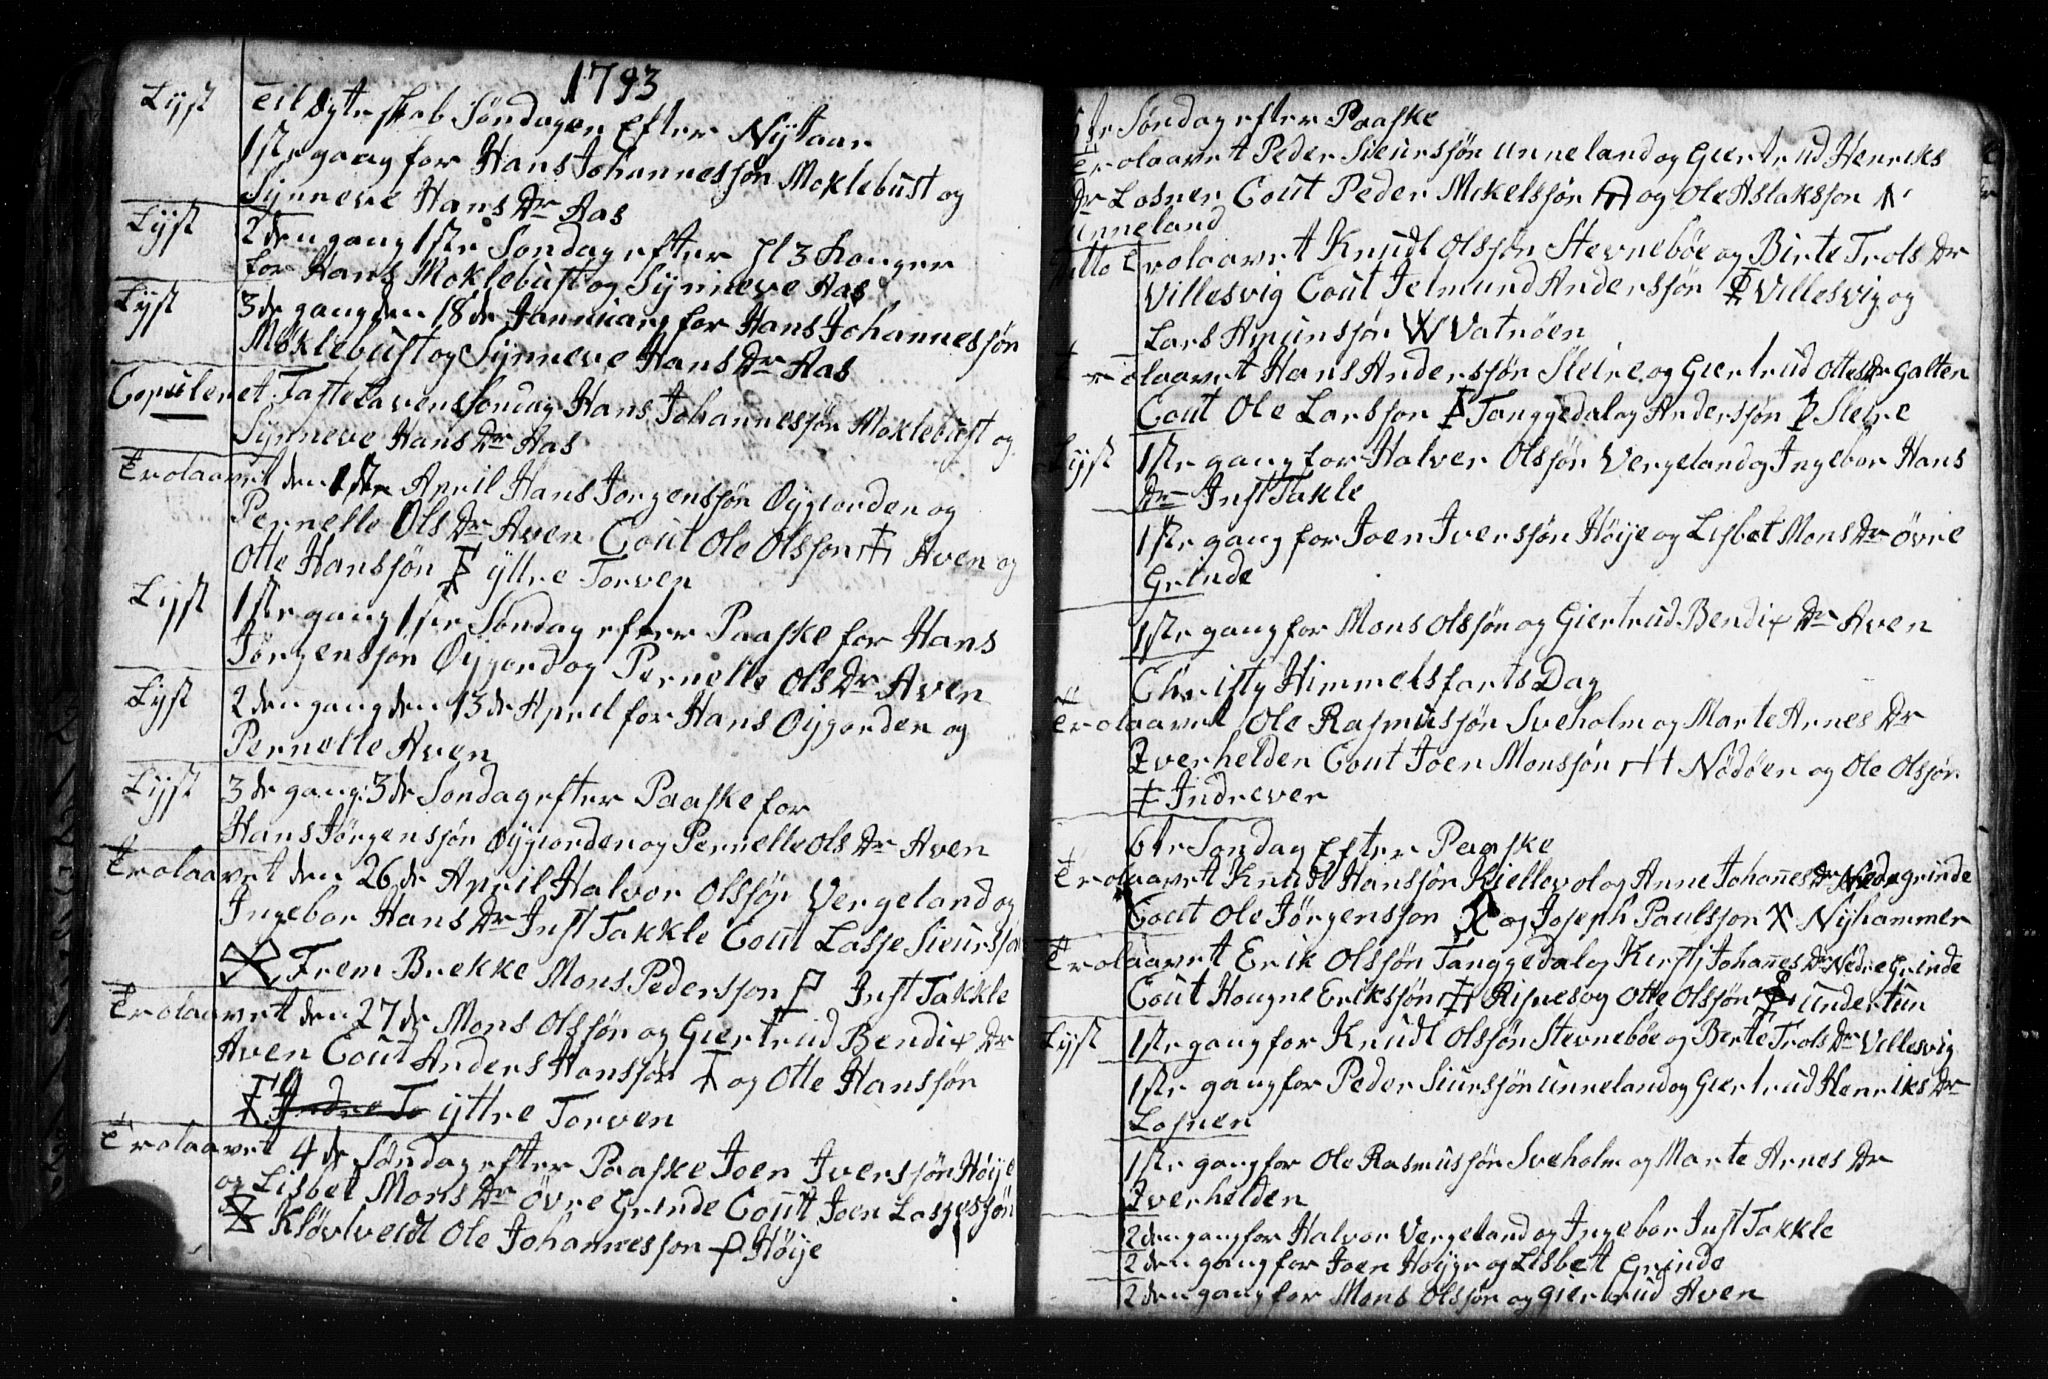 1793
Lyst til Ægteskab Søndagen Efter Nytaar
1ste gang for Hans Johannessøn Moklebust og
Synneve Hans Dr Aas
Lyst 2den gang 1ste Søndag efter Hl 3 Konger
for Hans Moklebust og Synneve Aas
Lyst 3de gang den 18de Januuarj for Hans Johannessøn
Moklebust og Synneve Hans Dr Aas
Copuleret Fastelavens Sondag Hans Johannessøn Moklebust og
Synneve Hans Dr Aas
Trolaavet den 1ste April Hans Jorgenssøn Øygorden og
Pernelle Ols Dr Aven Cout Ole Olssøn Aven og
Otte Hanssøn yttre Torven
Lyst 1ste gang 1ste Søndag efter Paaske for Hans
Jørgenssøn Øygord og Pernelle Ols Dr Aven
Lyst 2den gang den 13de April for Hans Øygorden og
Pernelle Aven
Lyst 3de gang 3de Søndag efter Paaske for
Hans Jørgenssøn Øygorden og Pernelle Ols Dr Aven
Trolaavet den 26de April Halvor Olssøn Vergeland og
Ingebor Hans Dr Inst Takkle Cout Lasse Sieurssøn
Frem Brekke Mons Pederssøn Inst Takkle
Trolaavet den 27de Mons Olssøn og Giertrud Bendix Dr
Aven Cout Anders Hanssøn og Otte Hanssøn
Indre To yttre Torven
Trolaavet 4de Søndag efter Paaske Joen Iverssøn Høije
og Lisbet Mons Dr Øvre Grinde Cout Joen Lassessøn
Kløvtveidt Ole Johannessøn Høije
5te Søndag efter Paaske
Trolaavet Peder Sieurssøn Unneland og Giertrud Henriks
Dr Losner Cout Peder Mikelssøn og Ole Aslakssøn
Unneland
Ditto Trolaavet Knudt Olssøn Stevnebøe og Birte Trols Dr
Villesvig Cout Jelmund Anderssøn Villesvig og
Lars Amunssøn Vatnøen
Trolaavet Hans Anderssøn Sleire og Giertrud Ottes Dr Galten
Cout Ole Larssøn Tanggedal og Anderssøn Sleire
Lyst 1ste gang for Halver Olssøn Vergeland og Ingebor Hans
Dr Inst Takle
1ste gang for Joen Iverssøn Høije og Lisbet Mons Dr Øvre
Grinde
1ste gang for Mons Olssøn og Giertrud Bendix Dr Aven
Christy Himmelsfarts Dag
Trolaavet Ole Rasmussøn Sveholm og Marte Arnes Dr
Iverhelden Cout Joen Monssøn Nødøen og Ole Olssøn
Indrever
6te Søndag Efter Paaske
Trolaavet Knudt Hanssøn Kiellevol og Anne Johañes Dr Nedregrinde
Cout Ole Jørgenssøn og Joseph Paulssøn Nyhammer
Trolaavet Erik Olssøn Tanggedal og Kersti Johañes Dr Nedre Grinde
Cout Hougne Erikssøn Risnes og Otte Olssøn Undertun
Lyst 1ste gang for Knudt Olssøn Stevnebøe og Berte Trols Dr Villesvig
1ste gang for Peder Siurssøn Unneland og Giertrud Henriks Dr
Losner
1ste gang for Ole Rasmussøn Sveholm og Marte Arnes Dr
Iverhelden
2den gang for Halvor Vergeland og Ingebor Inst Takkle
2den gang for Joen Høyje og Lisbet Grinde
2den gang for Mons Olssøn og Giertrud Aven